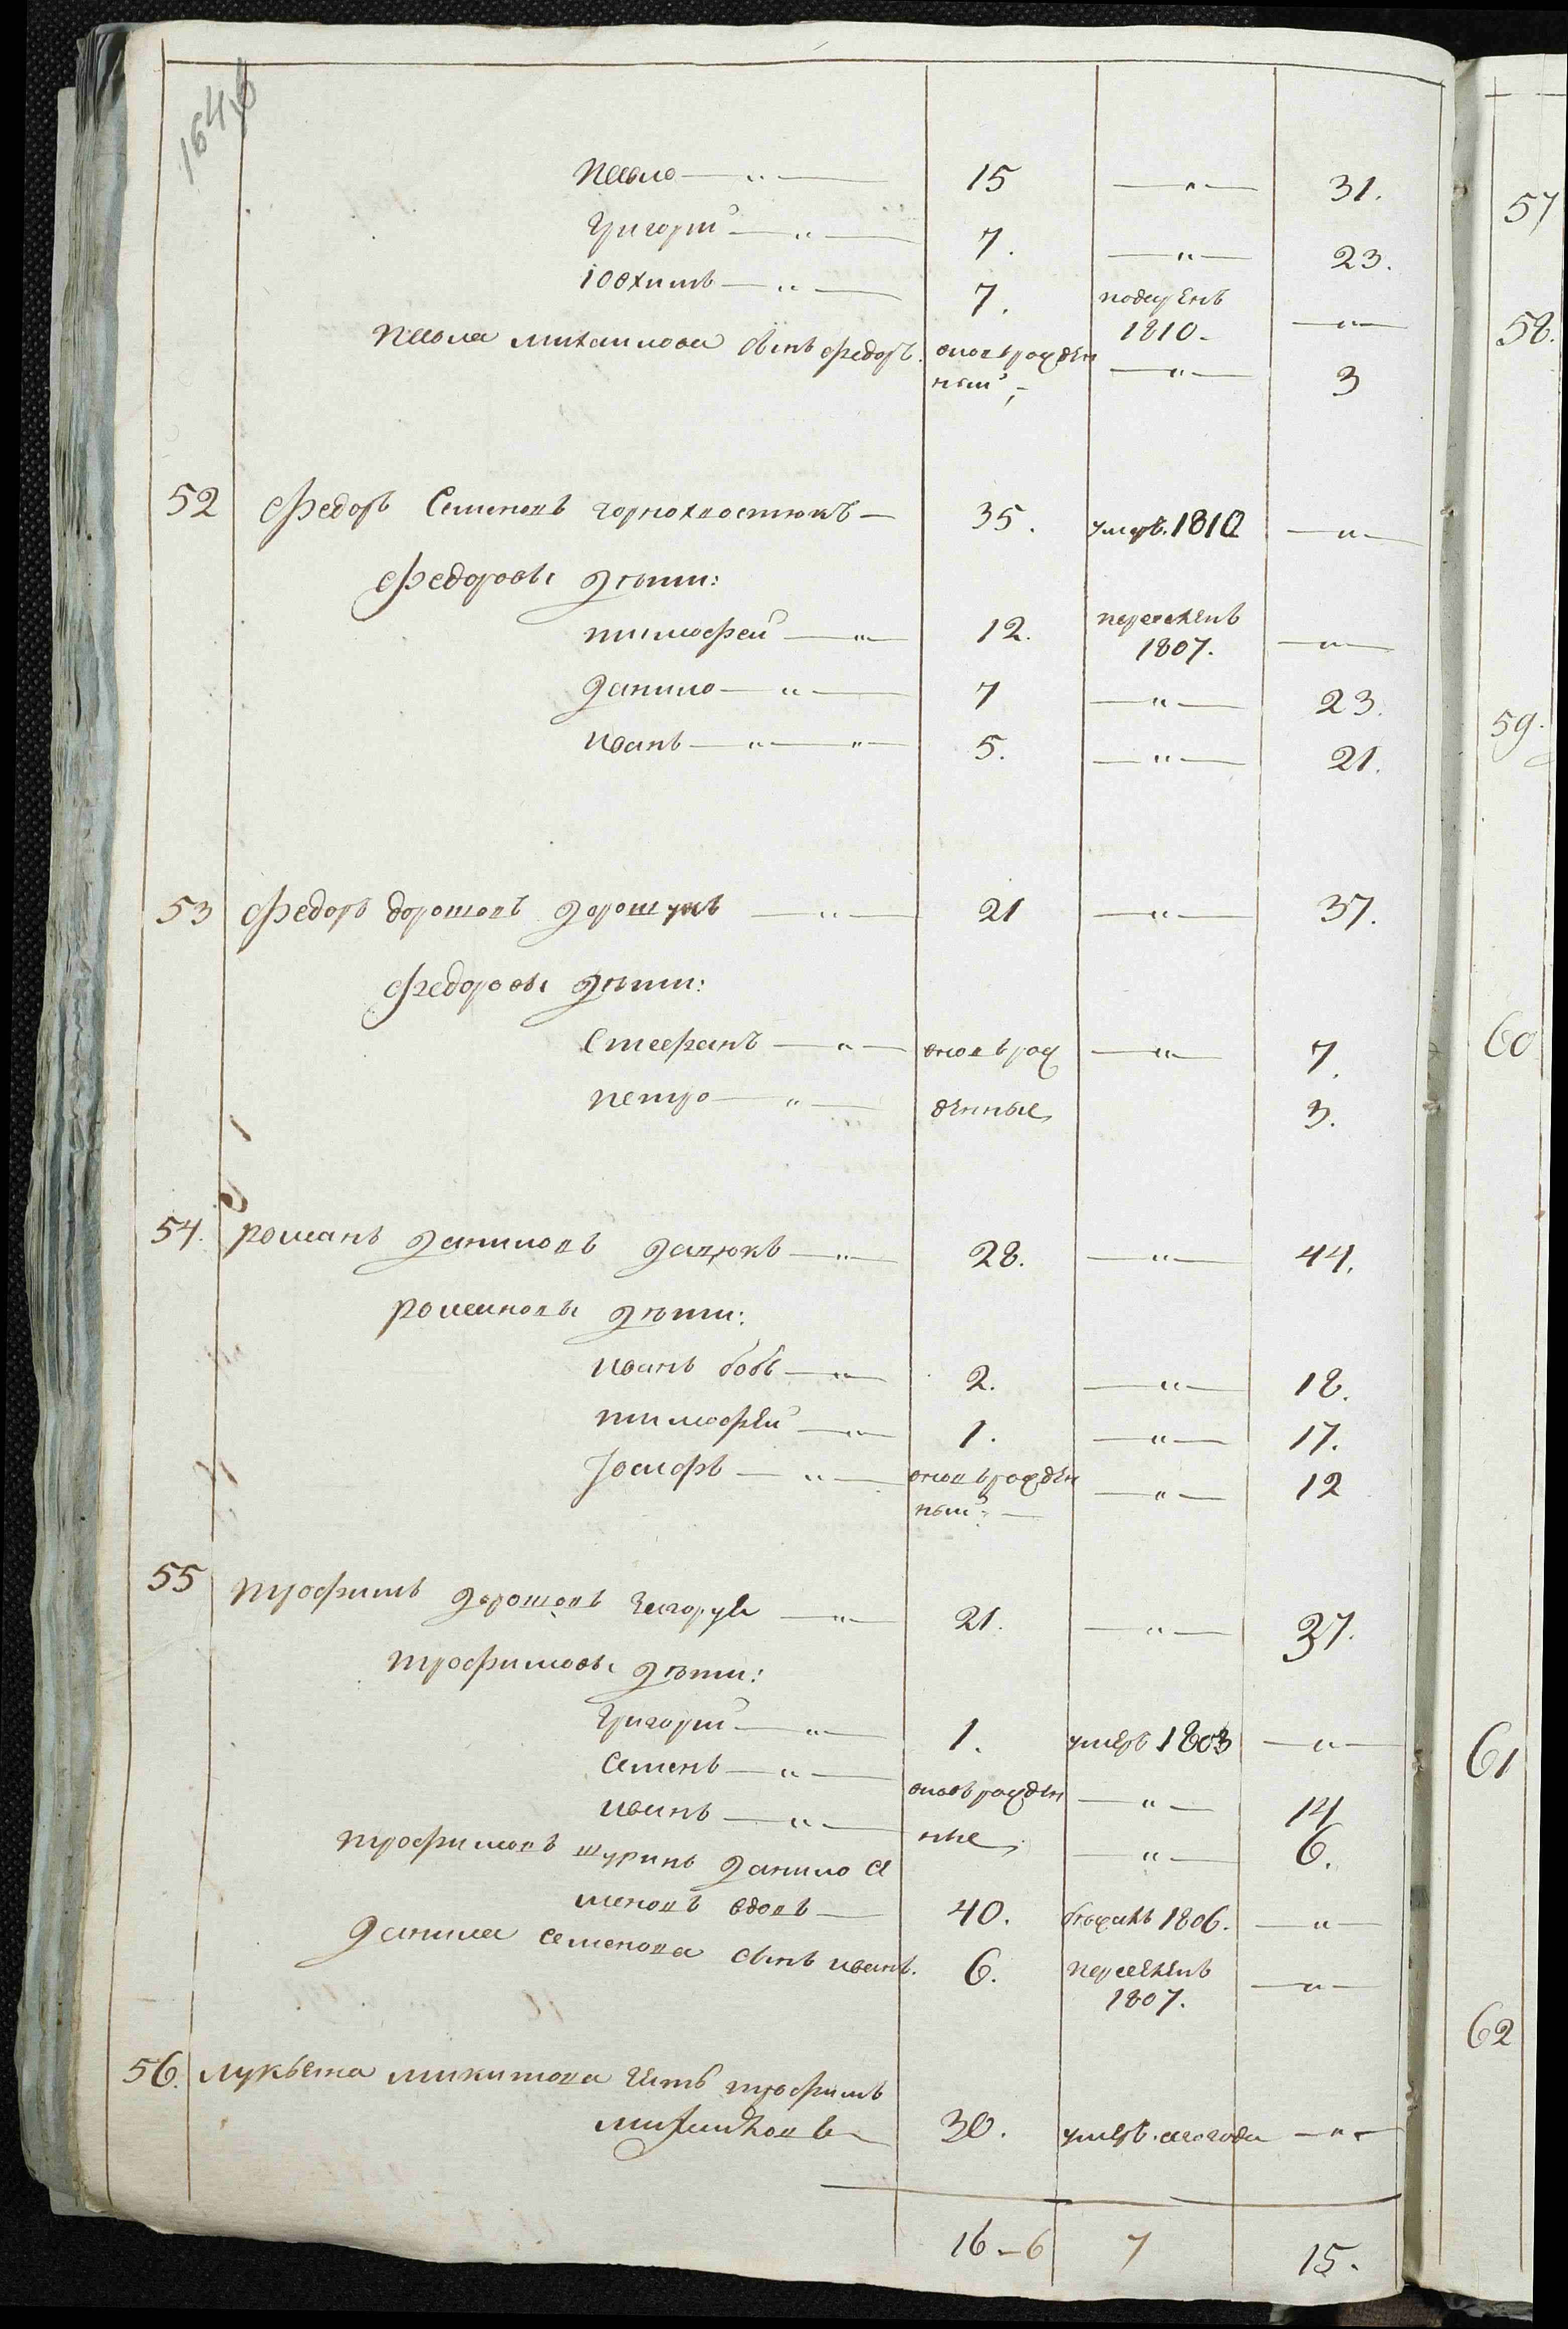 164об
Павло — " — 15 — " — 31.
Григорій — " — 7. — " — 23.
Іовхимъ — " — 7. 1810. — " —
Павла Михаилова сынъ Федоръ. вновьрожден
ный; — " — 3
52 Федоръ Семеновъ Горнохвостюкъ — 35. умеръ. 1810 — " —
Федоровы дѣти:
Тимофей — " — 12. переведенъ
1807. — " —
Данило — " — 7 — " — 23.
Иванъ — " — " — 5. — " — 21.
53 Федоръ Дорошовъ Дорошукъ — " — 21 — " — 37.
Федоровы дѣти:
Стефанъ — " — вновьрож — " — 7.
Петро — " — денные, 3.
54. Романъ Даниловъ Дацюкъ — " — 28. — " — 44.
Романовы дѣти:
Иванъ бобъ — " — 2. — " — 18.
Тимофѣй — " — 1. — " — 17.
Іосифъ — " — вновьрожден — " — 12
ный; —
55 Трофимъ Дорошовъ — " — 21. — " — 37.
Трофимовы дѣти:
Григорій — " — 1. умеръ 1803 — " —
Семенъ — " — вноворожден — " — 14
Иванъ — " — ные, — " — 6.
Трофимовъ шуринъ Данило Се
меновъ вдовъ — 40. бѣжалъ 1806. — " —
Данила Семенова сынъ Иванъ. 6. переведенъ
1807. — " —
56. Лукьяна Микитова зять Трофимъ
30. умеръ. — " —
16 – 6 7 15.
57
58.
59.
60
61
62